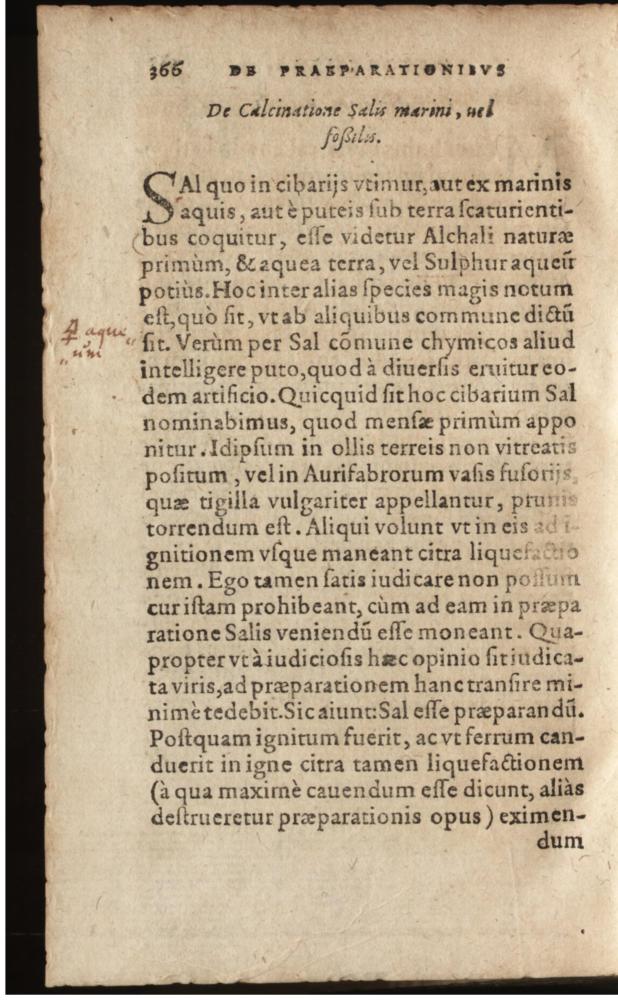 366 DE PRAEPARATIONIBVS
De Calcinatione Salis marini, uel
foßilis.
SAl quo in cibarijs vtimur, aut ex marinis
aquis, aut è puteis ſub terra ſcaturienti-
bus coquitur, eſſe videtur Alchali naturæ
primùm, & aquea terra, vel Sulphur aqueũ
potiùs. Hoc inter alias ſpecies magis notum
eſt, quò ſit, vt ab aliquibus commune dictũ
ſit. Verùm per Sal cõmune chymicos aliud
intelligere puto, quod à diuerſis eruitur eo-
dem artificio. Quicquid ſit hoc cibarium Sal
nominabimus, quod menſæ primùm appo
nitur. Idipſum in ollis terreis non vitreatis
poſitum, vel in Aurifabrorum vaſis fuſorijs,
quæ tigilla vulgariter appellantur, prunis
torrendum eſt. Aliqui volunt vt in eis ad i-
gnitionem vſque maneant citra liquefactio
nem. Ego tamen ſatis iudicare non poſſum
cur iſtam prohibeant, cùm ad eam in præpa
ratione Salis veniendũ eſſe moneant. Qua-
propter vt à iudicioſis hæc opinio ſit iudica-
ta viris, ad præparationem hanc tranſire mi-
nimè tedebit. Sic aiunt: Sal eſſe præparandũ.
Poſtquam ignitum fuerit, ac vt ferrum can-
duerit in igne citra tamen liquefactionem
(à qua maximè cauendum eſſe dicunt, aliàs
deſtrueretur præparationis opus) eximen-
dum
aque
um